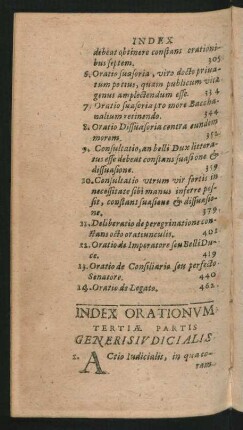 INDEX
debeat obtinere constans orationi-
bus septem. 305
6. Oratio suasoria, viro docto priua-
tum potius, quàm publicum vitæ
genus amplectendum esse. 334
7. Oratio suasoria pro more Baccha-
nalium retinendo. 344
8. Oratio Dissuasoria contra eundem
morem. 352
9. Consultatio, an belli Dux littera-
tus esse debeat constans suasione &
dissuasione. 359
10. Consultatio vtrum vir fortis in
necessitate sibi manus inferre pos-
sit, constans suasione & dissuasio-
ne. 379.
11. Deliberatio de peregrinatione con-
stans octo oratiunculis. 402
12. Oratio de Imperatore seu Belli Du-
ce. 419
13. Oratio de Consiliario seu perfecto
Senatore. 440
14. Oratio de Legato. 462.
INDEX ORATIONVM
TERTIÆ PARTIS
GENERIS IVDICIALIS.
1. ACtio Iudicialis, in qua co-
ram